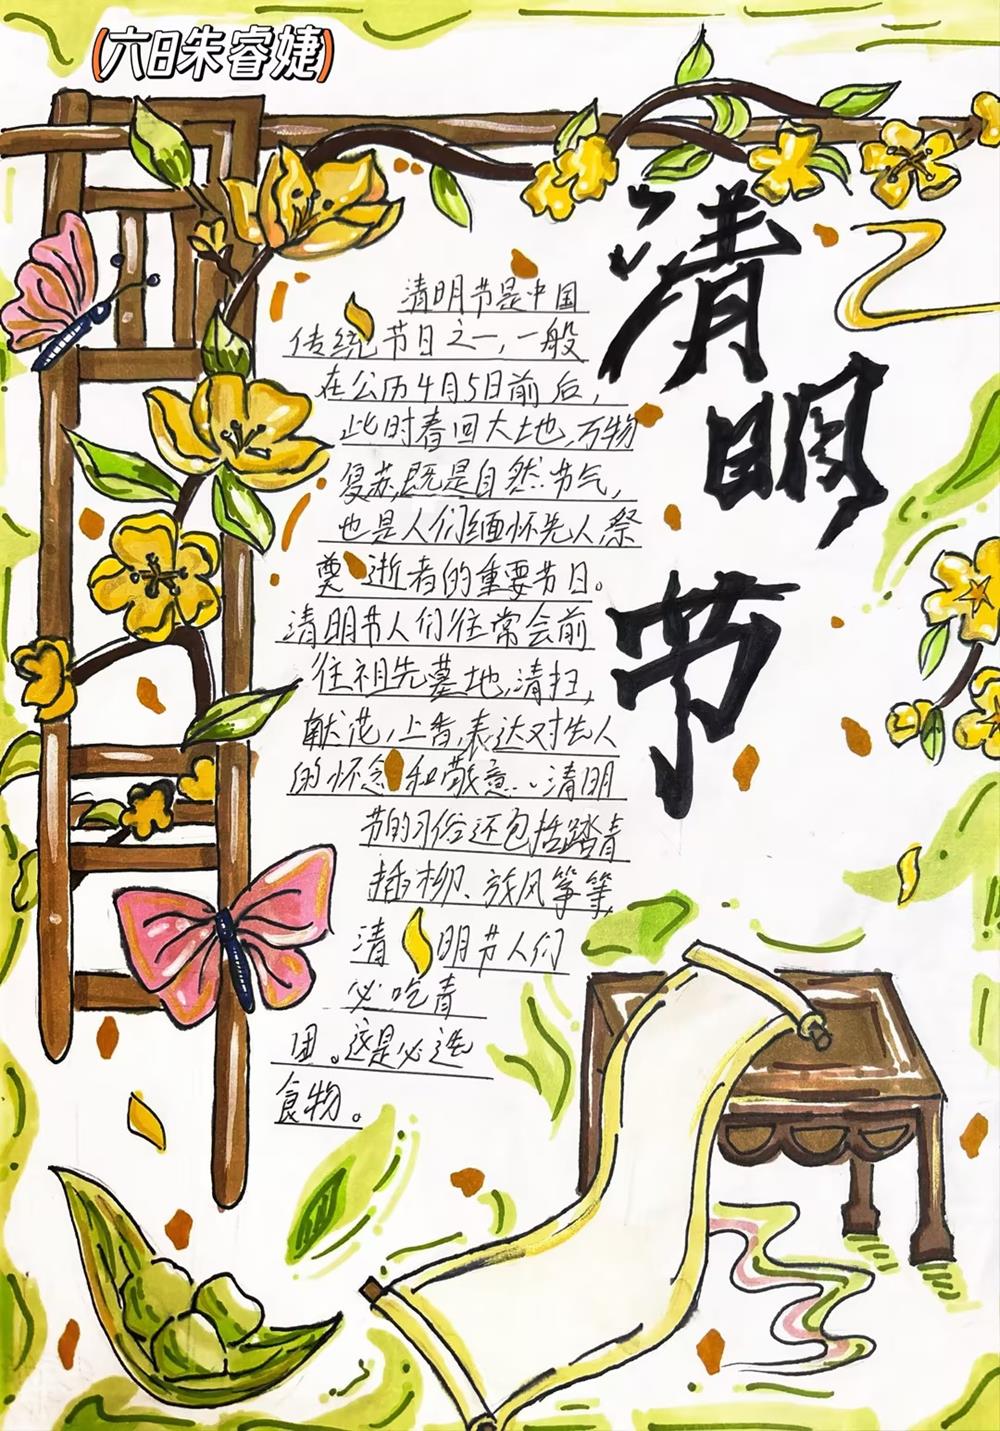 (六日朱睿婕)
清明节
清明节是中国
传统节日之一,一般
在公历4月5日前后,
此时春回大地,万物
复苏,既是自然节气,
也是人们缅怀先人祭
奠逝者的重要节日。
清明节人们往常会前
往祖先墓地,清扫,
献花,上香,表达对先人
的怀念和敬意。清明
节的习俗还包括踏青
插柳、放风筝等,
清明节人们
必吃青
团。这是必选
食物。